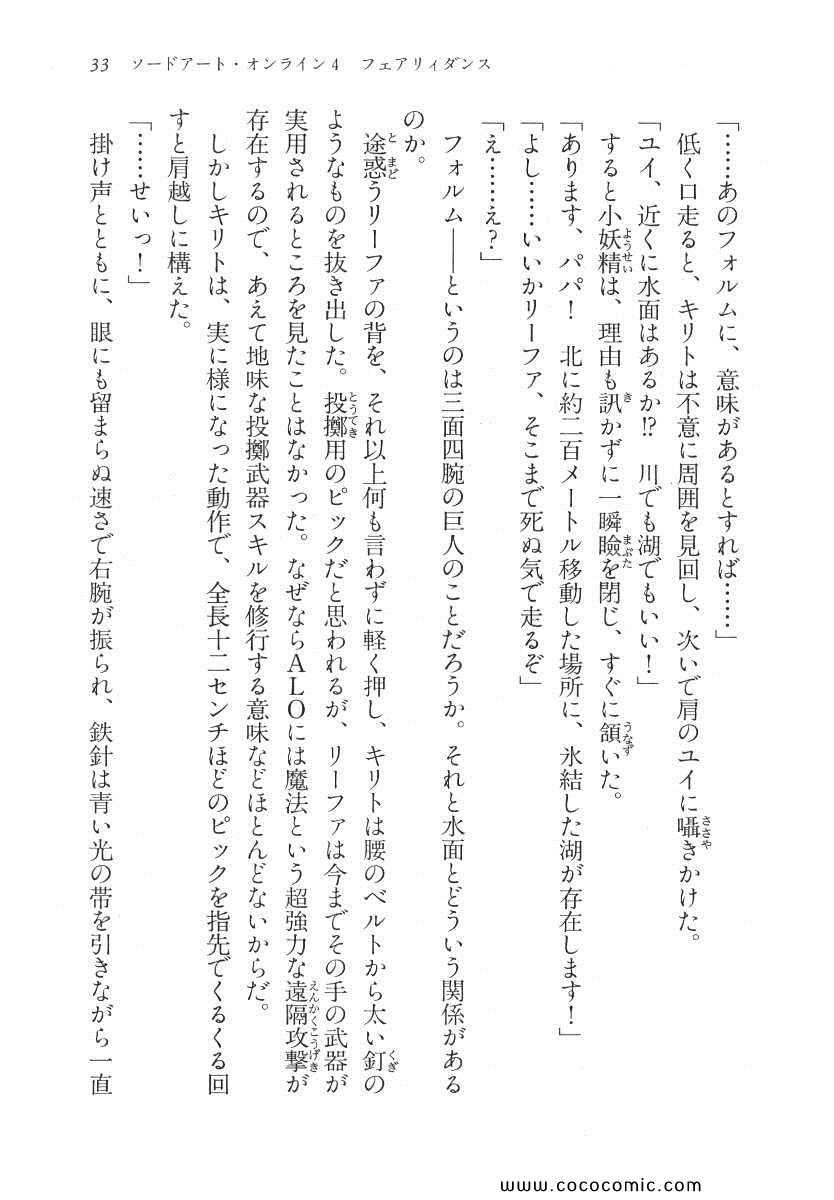 33　ソードアート・オンライン4　フェアリィダンス
「……あのフォルムに、意味があるとすれば……」
低く口走ると、キリトは不意に周囲を見回し、次いで肩のユイに囁きかけた。
「ユイ、近くに水面はあるか⁉　川でも湖でもいい！」
すると小妖精は、理由も訊かずに一瞬瞼を閉じ、すぐに頷いた。
「あります、パパ！　北に約二百メートル移動した場所に、氷結した湖が存在します！」
「よし……いいかリーファ、そこまで死ぬ気で走るぞ」
「え……え？」
フォルム――というのは三面四腕の巨人のことだろうか。それと水面とどういう関係がある
のか。
途惑うリーファの背を、それ以上何も言わずに軽く押し、キリトは腰のベルトから太い釘の
ようなものを抜き出した。投擲用のピックだと思われるが、リーファは今までその手の武器が
実用されるところを見たことはなかった。なぜならＡＬＯには魔法という超強力な遠隔攻撃が
存在するので、あえて地味な投擲武器スキルを修行する意味などほとんどないからだ。
しかしキリトは、実に様になった動作で、全長十二センチほどのピックを指先でくるくる回
すと肩越しに構えた。
「……せいっ！」
掛け声とともに、眼にも留まらぬ速さで右腕が振られ、鉄針は青い光の帯を引きながら一直
www.cococomic.com